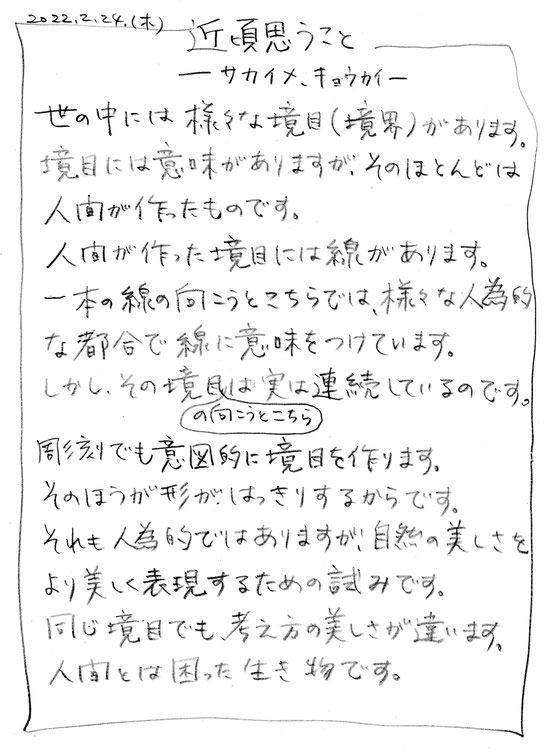 2022.2.24.(木)
近頃思うこと
ーサカイメ、キョウカイー
世の中には様々な境目(境界)があります。
境目には意味がありますが、そのほとんどは
人間が作ったものです。
人間が作った境目には線があります。
一本の線の向こうとこちらでは、様々な人為的
な都合で線に意味をつけています。
しかし、その境目は実は連続しているのです。
の向こうとこちら
彫刻でも意図的に境目を作ります。
そのほうが形がはっきりするからです。
それも人為的ではありますが、自然の美しさを
より美しく表現するための試みです。
同じ境目でも、考え方の美しさが違います。
人間とは困った生き物です。